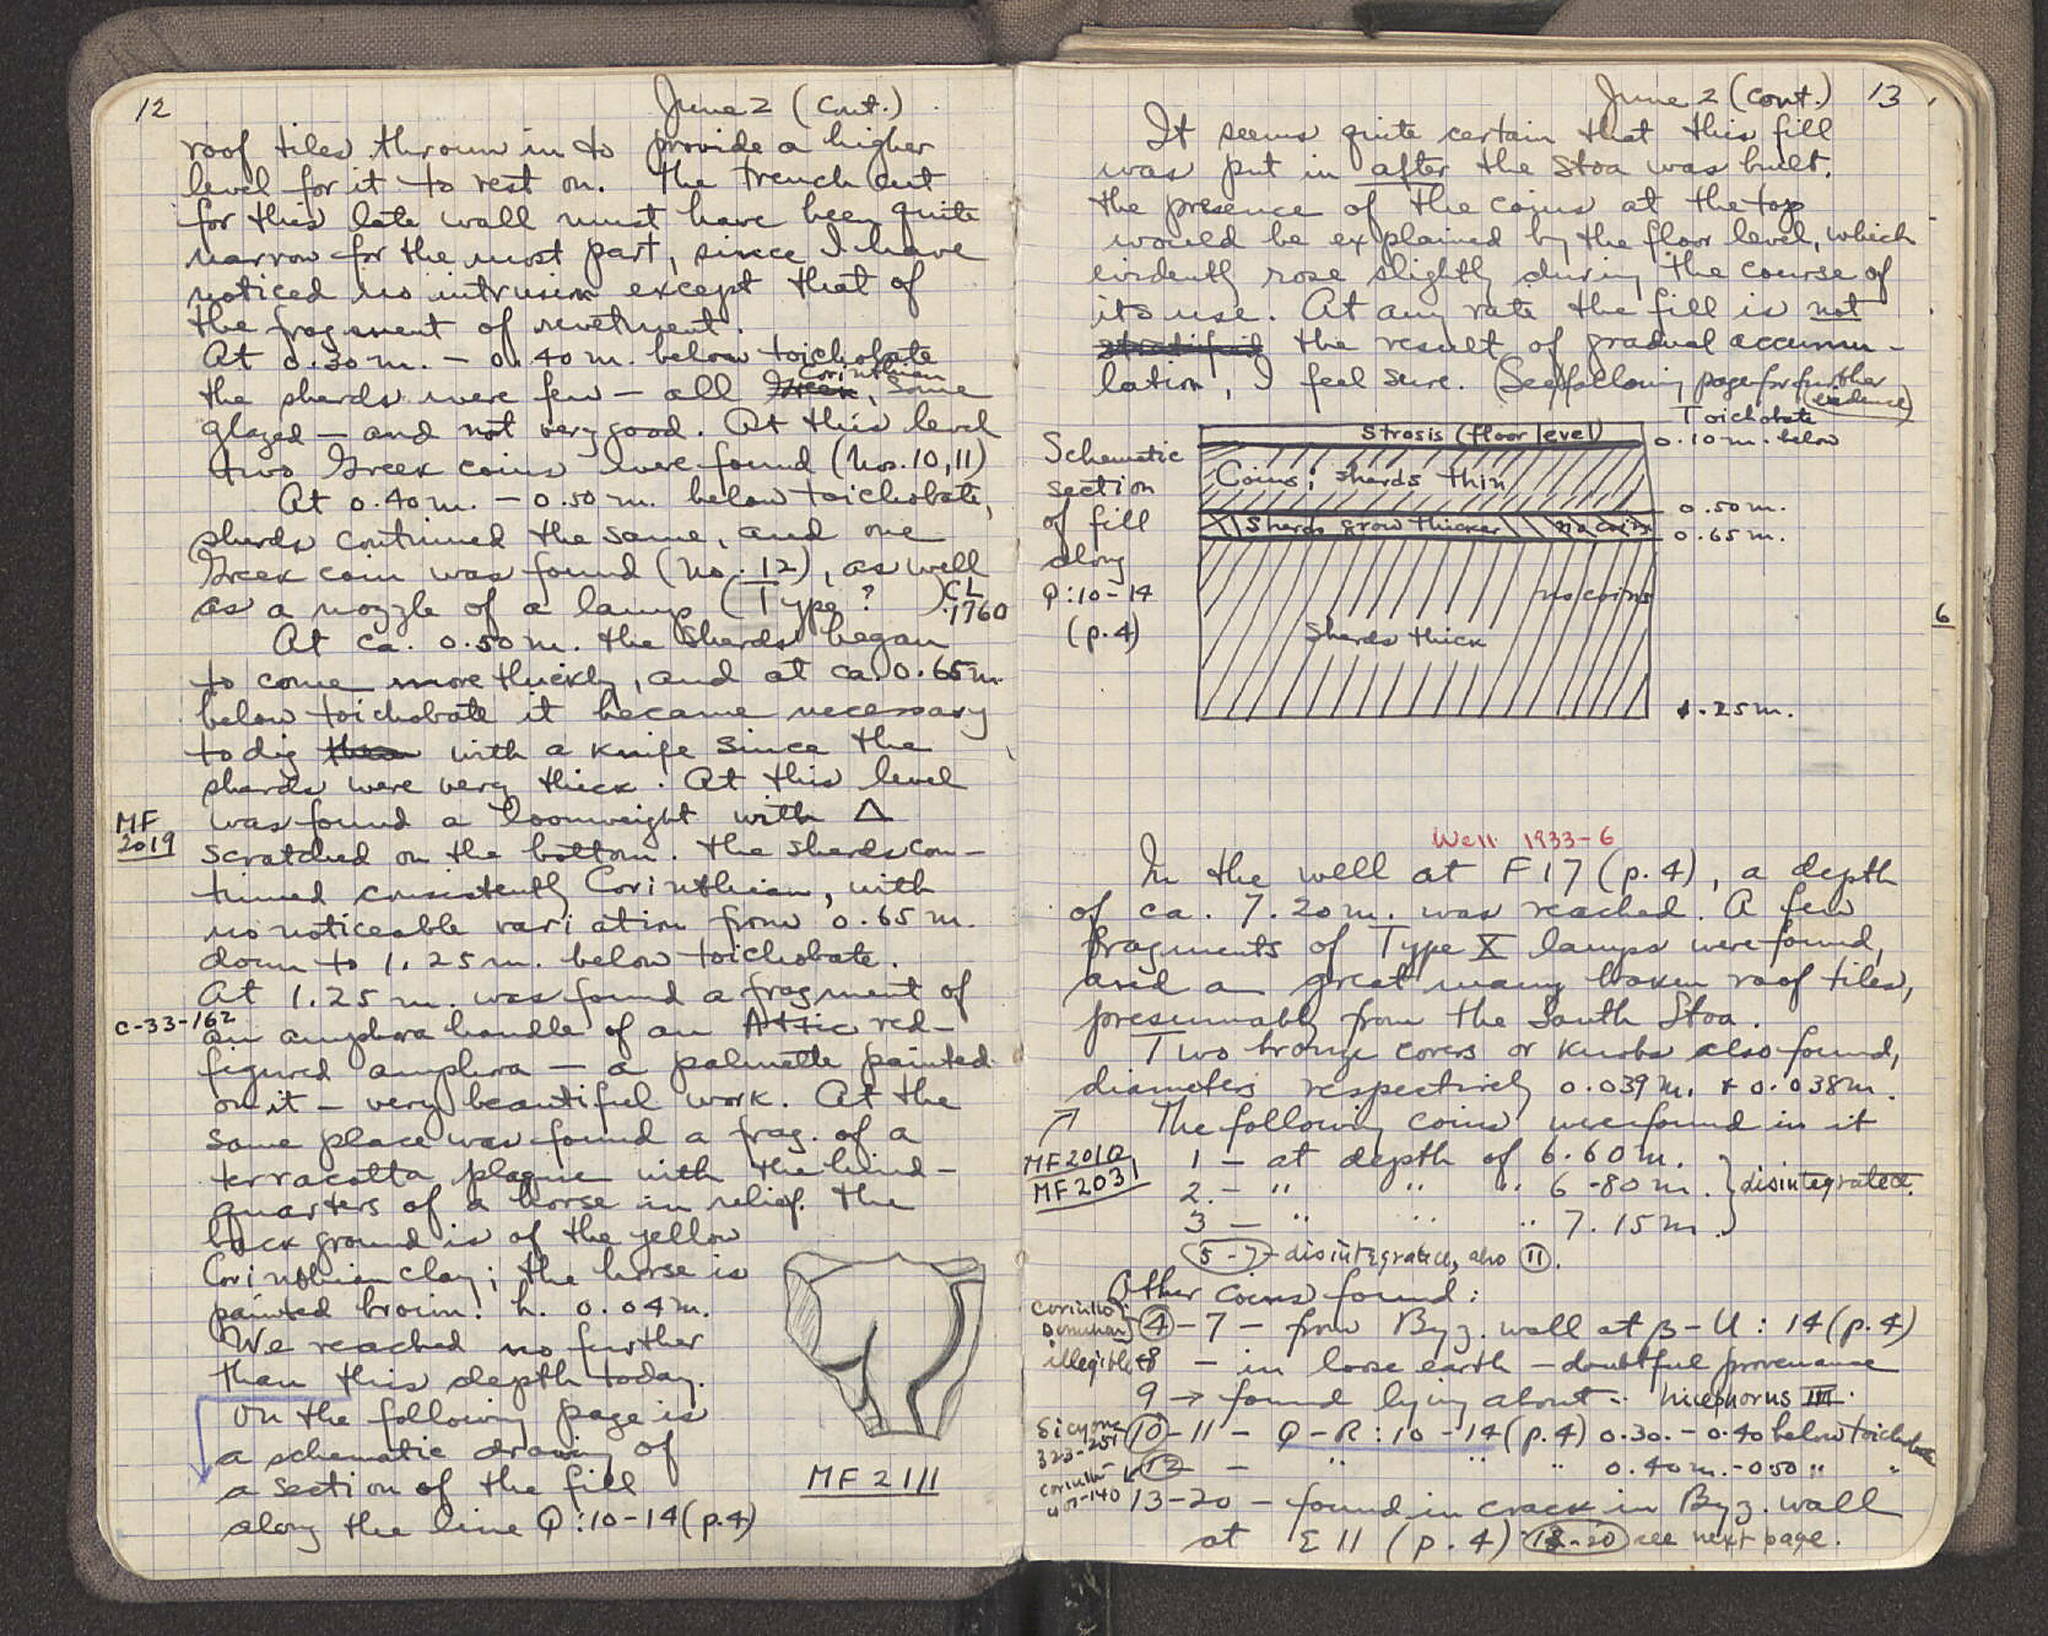 12
June 2 (cont.)
roof tiles thrown in to provide a higher
level for it to rest on. The trench cut
for this late wall must have been quite
narrow for the most part, since I have
noticed no intrusion except that of
the fragment of revetment.
At 0.30 m. - 0.40 m. below toichobate
the sherds were few - all Greek, Corinthian some
glazed - and not very good. At this level
two Greek coins were found (Nos. 10, 11)
At 0.40 m. - 0.50 m. below toichobate,
sherds continued the same, and one
Greek coin was found (No. 12), as well
as a nozzle of a lamp (Type ? ) CL
1760
At ca. 0.50 m. the sherds began
to come more thickly, and at ca. 0.65 m.
below toichobate it became necessary
to dig them with a knife since the
sherds were very thick. At this level
MF
2019
was found a loomweight with Δ
scratched on the bottom. The sherds con-
tinued consistently Corinthian, with
no noticeable variation from 0.65 m.
down to 1.25 m. below toichobate.
At 1.25 m. was found a fragment of
C-33-162
an amphora handle of an Attic red-
figured amphora - a palmette painted
on it - very beautiful work. At the
same place was found a frag. of a
terracotta plaque with the hind-
quarters of a horse in relief. The
back ground is of the yellow
Corinthian clay; the horse is
painted brown. h. 0.04 m.
We reached no further
than this depth today.
On the following page is
a schematic drawing of
a section of the fill
along the line Q:10-14 (p.4)
MF 2111
June 2 (cont.) 13
It seems quite certain that this fill
was put in after the Stoa was built.
The presence of the coins at the top
would be explained by the floor level, which
evidently rose slightly during the course of
its use. At any rate the fill is not
stratified the result of gradual accumu-
lation, I feel sure. (See following page for further
evidence)
Schematic
section
of fill
along
Q:10-14
(p.4)
Toichobate
Strosis (floor level)
0.10 m. below
Coins; sherds thin
0.50 m.
Sherds grow thicker no coins
0.65 m.
no coins
Sherds thick
1.25 m.
6
Well 1933-6
In the well at F17 (p.4), a depth
of ca. 7.20 m. was reached. A few
fragments of Type X lamps were found,
and a great many broken roof tiles,
presumably from the South Stoa.
Two bronze covers or knobs also found,
diameters respectively 0.039 m. + 0.038 m.
MF2010
MF2031
The following coins were found in it
1 - at depth of 6.60 m.
2. - " " " 6.80 m. } disintegrated.
3 - " " " 7.15 m.
5-7 - disintegrated, also 11.
Other coins found:
4-7 - from Byz. wall at β-U:14 (p.4)
illegible 8 - in loose earth - doubtful provenance
9 → found lying about - Nicephorus III.
Sicyon
323-251
10-11 - Q-R:10-14 (p.4) 0.30 - 0.40 below toichobate
12 - " " " 0.40 m. - 0.50 " "
13-20 - found in crack in Byz. wall
at Σ 11 (p.4) 18-20 see next page.